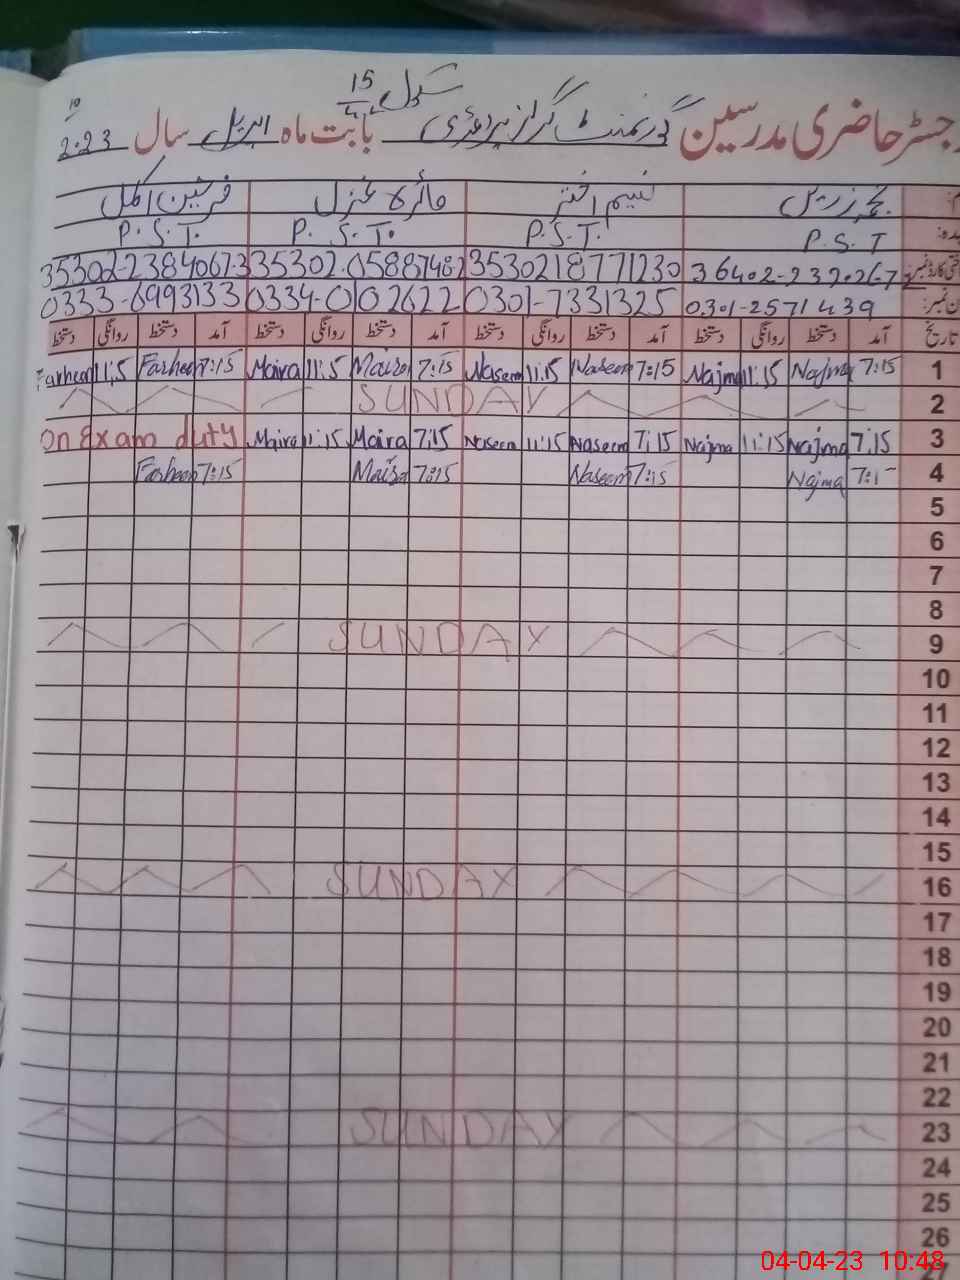 15
4
سکول
10
رجسٹر حاضری مدرسین گورنمنٹ گرلز بابت ماہ اپریل سال 2023
نجمہ زریں نسیم اختر مائرہ غزل فرحین اکمل
P.S.T P.S.T. P. S.T. P.S.T.
35302-2384067-3 35302-0588748-2 3530218771230 36402-2392267-2
0333-6993133 0334-0102622 0301-7331325 0301-2571439
تاریخ آمد دستخط روانگی دستخط آمد دستخط روانگی دستخط آمد دستخط روانگی دستخط آمد دستخط روانگی دستخط
Farheen 11:15 Farheen 7:15 Maira 11:15 Maira 7:15 Naseem 11:15 Naseem 7:15 Najma 11:15 Najma 7:15 1
SUNDAY 2
On Exam duty Maira 11:15 Maira 7:15 Naseem 11:15 Naseem 7:15 Najma 11:15 Najma 7:15 3
Farheen 7:15 Maira 7:15 Naseem 7:15 Najma 7:1 4
5
6
7
8
SUNDAY 9
10
11
12
13
14
15
SUNDAY 16
17
18
19
20
21
22
SUNDAY 23
24
25
26
04-04-23 10:48